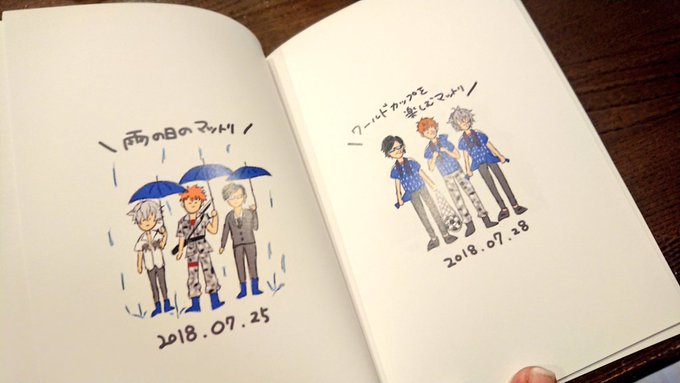 \雨の日のマットリ/
2018.07.25
\ワールドカップを
楽しむマットリ/
2018.07.28